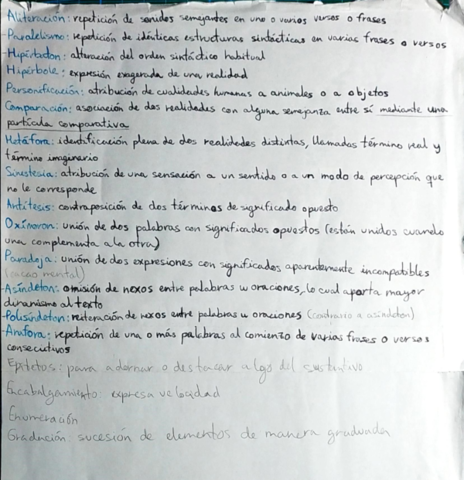 Aliteración: repetición de sonidos semejantes en uno o varios versos o frases
-Paralelismo: repetición de idénticas estructuras sintácticas en varias frases o versos
-Hipérbaton: alteración del orden sintáctico habitual
Hipérbole: expresión exagerada de una realidad
Personificación: atribución de cualidades humanas a animales o a objetos
Comparación: asociación de dos realidades con alguna semejanza entre sí mediante una
partícula comparativa
Metáfora: identificación plena de dos realidades distintas, llamadas término real y
término imaginario
Sinestesia: atribución de una sensación a un sentido o a un modo de percepción que
no le corresponde
Antítesis: contraposición de dos términos de significado opuesto
Oxímoron: unión de dos palabras con significados opuestos (están unidos cuando
una complementa a la otra)
Paradoja: unión de dos expresiones con significados aparentemente incompatibles
(caos mental)
-Asíndeton: omisión de nexos entre palabras u oraciones, lo cual aporta mayor
dinamismo al texto
-Polisíndeton: reiteración de nexos entre palabras u oraciones (contrario a asíndeton)
-Anáfora: repetición de una o más palabras al comienzo de varias frases o versos
consecutivos
Epítetos: para adornar o destacar algo del sustantivo
Encabalgamiento: expresa velocidad
Enumeración
Gradación: sucesión de elementos de manera graduada